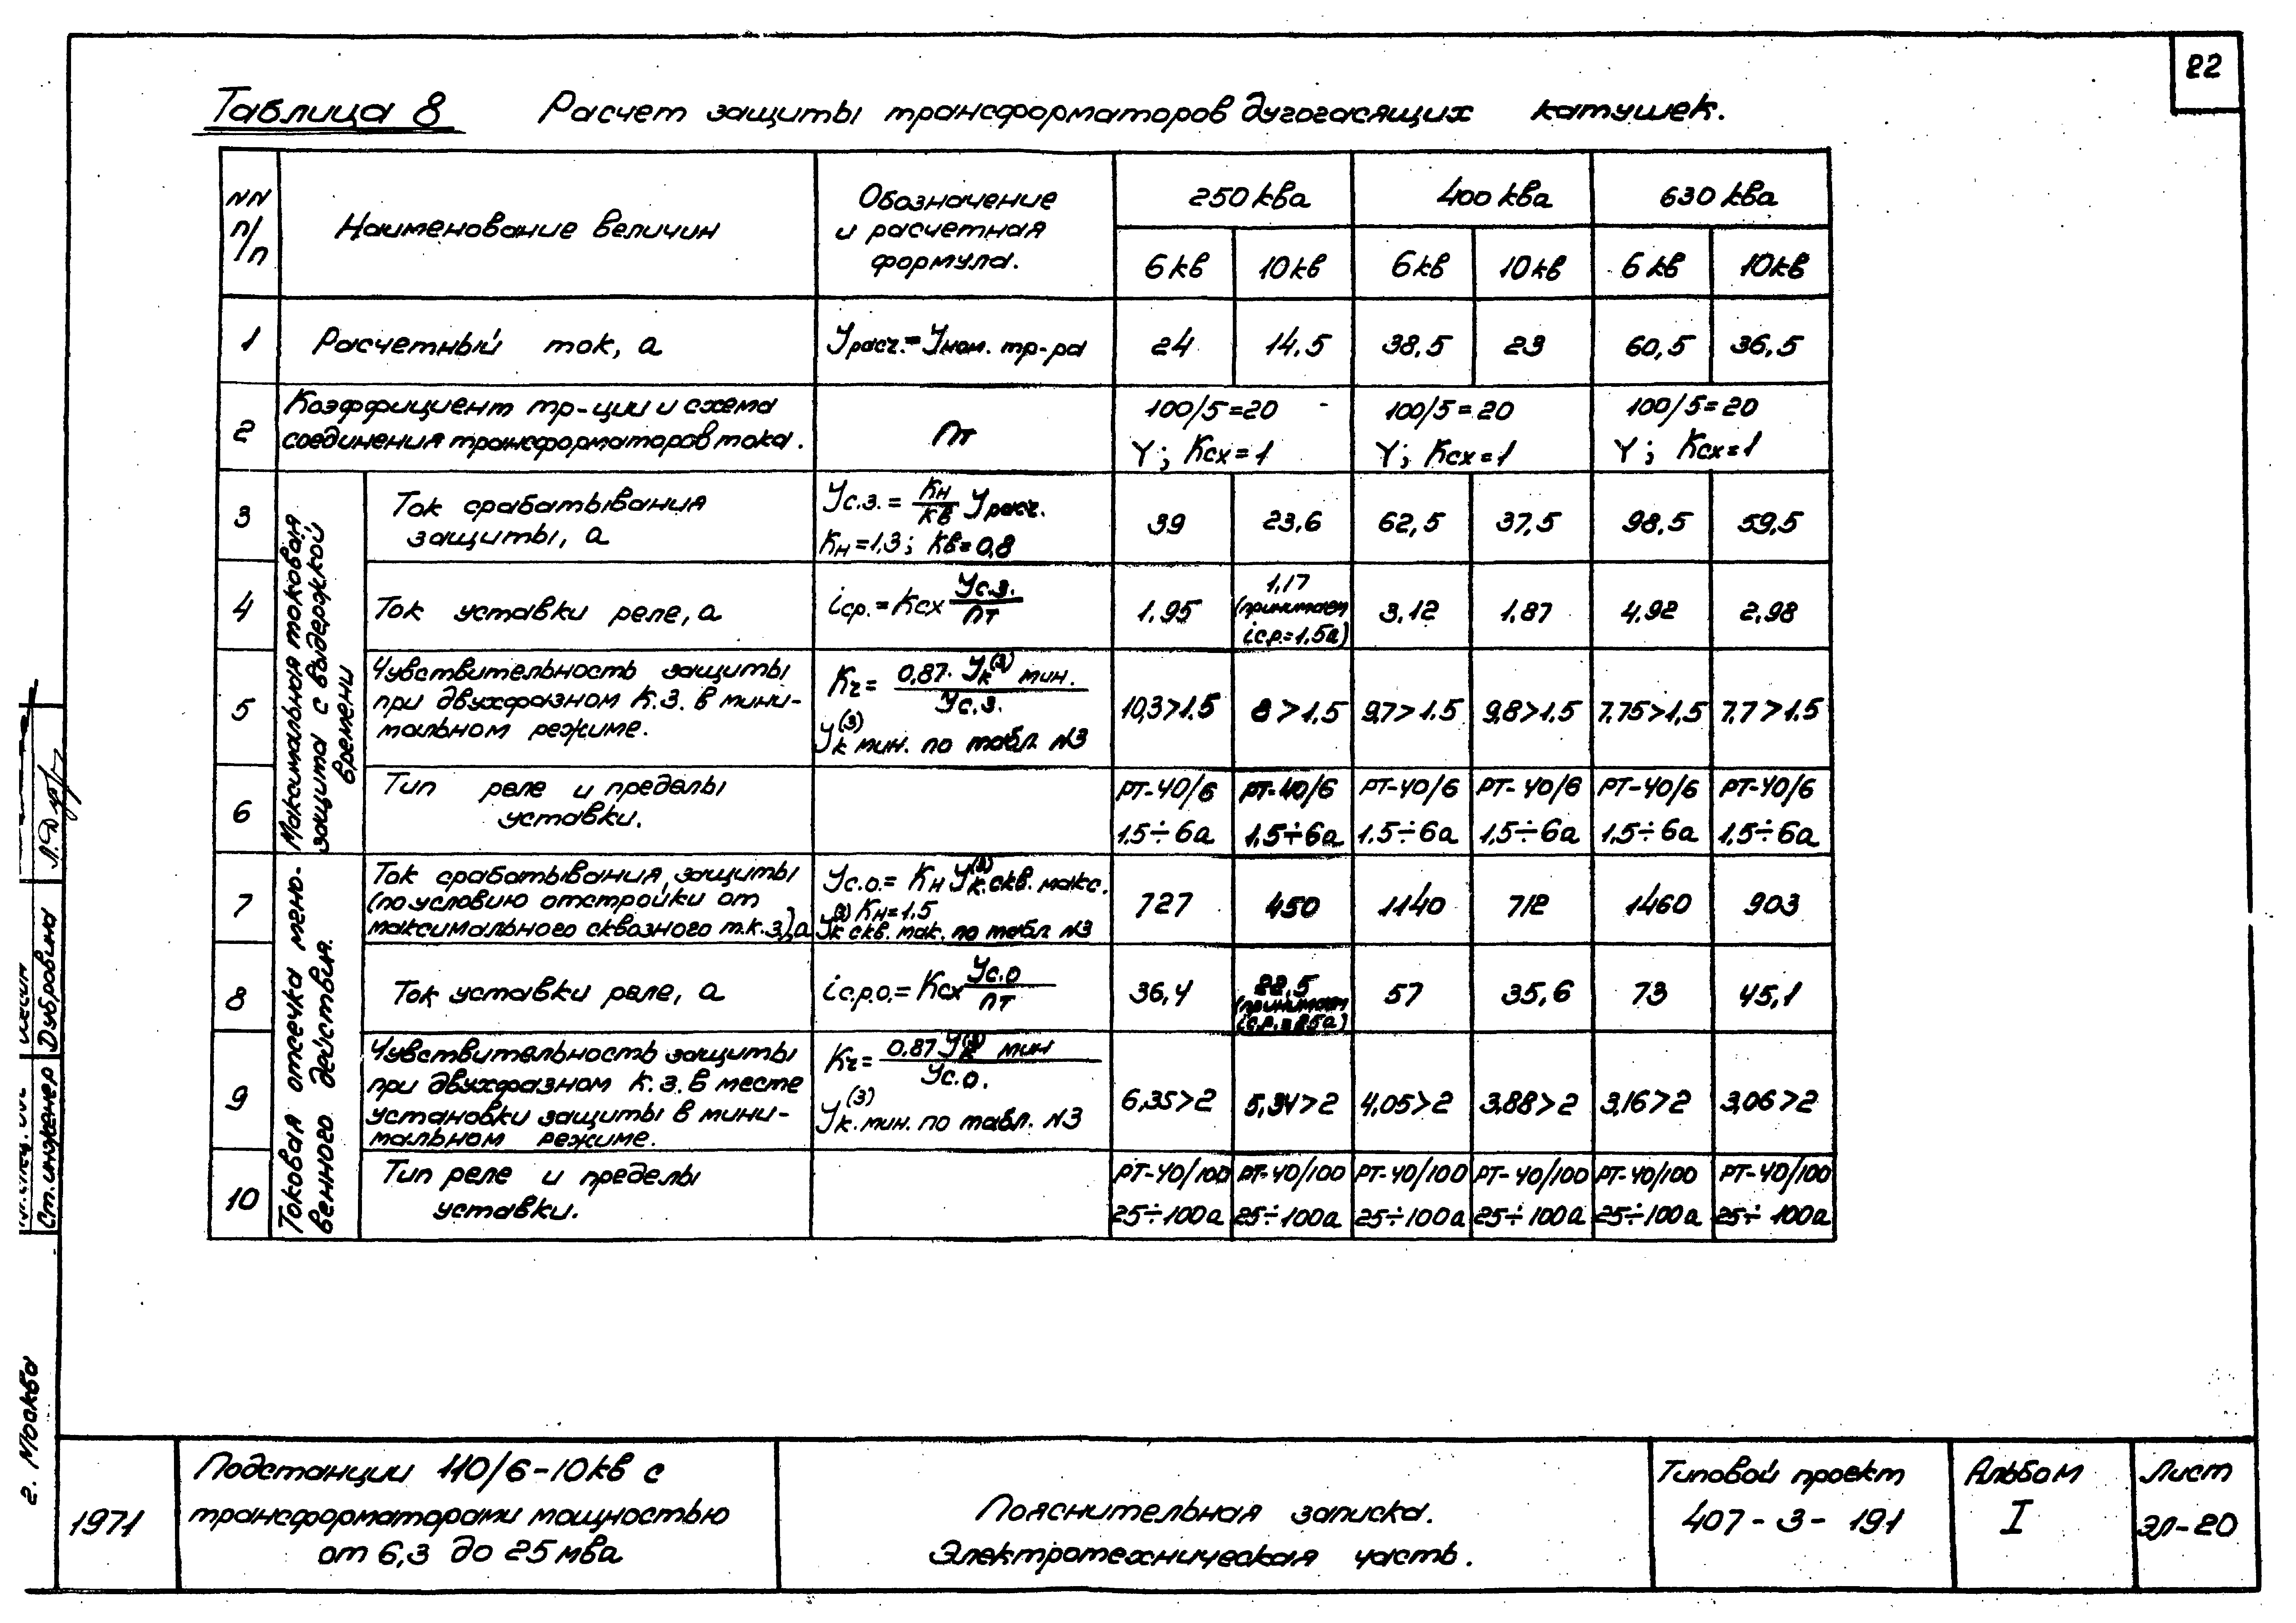 22
Таблица 8 Расчет защиты трансформаторов дугогасящих катушек.
NN п/п
Наименование величин
Обозначение
и расчетная
формула.
250 ква 400 ква 630 ква
6 кв 10 кв 6 кв 10 кв 6 кв 10 кв
1 Расчетный ток, а Iрасч.=Iном. тр-ра 24 14,5 38,5 23 60,5 36,5
2 Коэффициент тр-ции и схема
соединения трансформаторов тока.
nт
100/5=20 100/5=20 100/5=20
Y; Ксх=1 Y; Ксх=1 Y; Ксх=1
Максимальная токовая
защита с выдержкой
времени
3 Ток срабатывания
защиты, а
Iс.з.= Кн/Кв Iрасч.
Кн=1,3; Кв=0,8
39 23,6 62,5 37,5 98,5 59,5
4 Ток уставки реле, а iср.=Ксх Iс.з./nт
1,95 1,17 (принимаем iс.р.=1,5а) 3,12 1,87 4,92 2,98
5 Чувствительность защиты
при двухфазном к.з. в мини-
мальном режиме.
Кч= 0,87·Iк(3) мин./Iс.з.
Iк(3) мин. по табл. N3
10,3>1,5 8>1,5 9,7>1,5 9,8>1,5 7,75>1,5 7,7>1,5
6 Тип реле и пределы
уставки.
РТ-40/6 РТ-40/6 РТ-40/6 РТ-40/6 РТ-40/6 РТ-40/6
1,5÷6а 1,5÷6а 1,5÷6а 1,5÷6а 1,5÷6а 1,5÷6а
Токовая отсечка мгно-
венного действия.
7 Ток срабатывания защиты
(по условию отстройки от
максимального сквозного т.к.з.), а
Iс.о.= Кн Iк(3) скв. макс.
Кн=1,5
Iк(3) скв. мак. по табл. N3
727 450 1140 712 1460 903
8 Ток уставки реле, а iс.р.о.=Ксх Iс.о/nт
36,4 22,5 (принимаем iс.р.=25а) 57 35,6 73 45,1
9 Чувствительность защиты
при двухфазном к.з. в месте
установки защиты в мини-
мальном режиме.
Кч= 0,87 Iк(3) мин/Iс.о.
Iк(3) мин. по табл. N3
6,35>2 5,34>2 4,05>2 3,88>2 3,16>2 3,06>2
10 Тип реле и пределы
уставки.
РТ-40/100 РТ-40/100 РТ-40/100 РТ-40/100 РТ-40/100 РТ-40/100
25÷100а 25÷100а 25÷100а 25÷100а 25÷100а 25÷100а
Ст. инженер Дубровина
г. Москва
1971
Подстанции 110/6-10кв с
трансформаторами мощностью
от 6,3 до 25 мва
Пояснительная записка.
Электротехническая часть.
Типовой проект
407-3-191
Альбом
I
Лист
ЭЛ-20